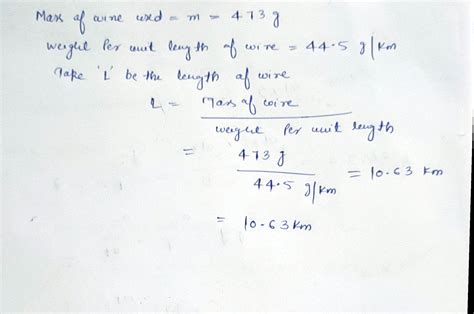 Mass of wire used = m = 473 g
Weight Per unit length of wire = 44.5 g/km
Take 'L' be the length of wire
L = Mass of wire / weight Per unit length
= 473 g / 44.5 g/km = 10.63 km
= 10.63 km